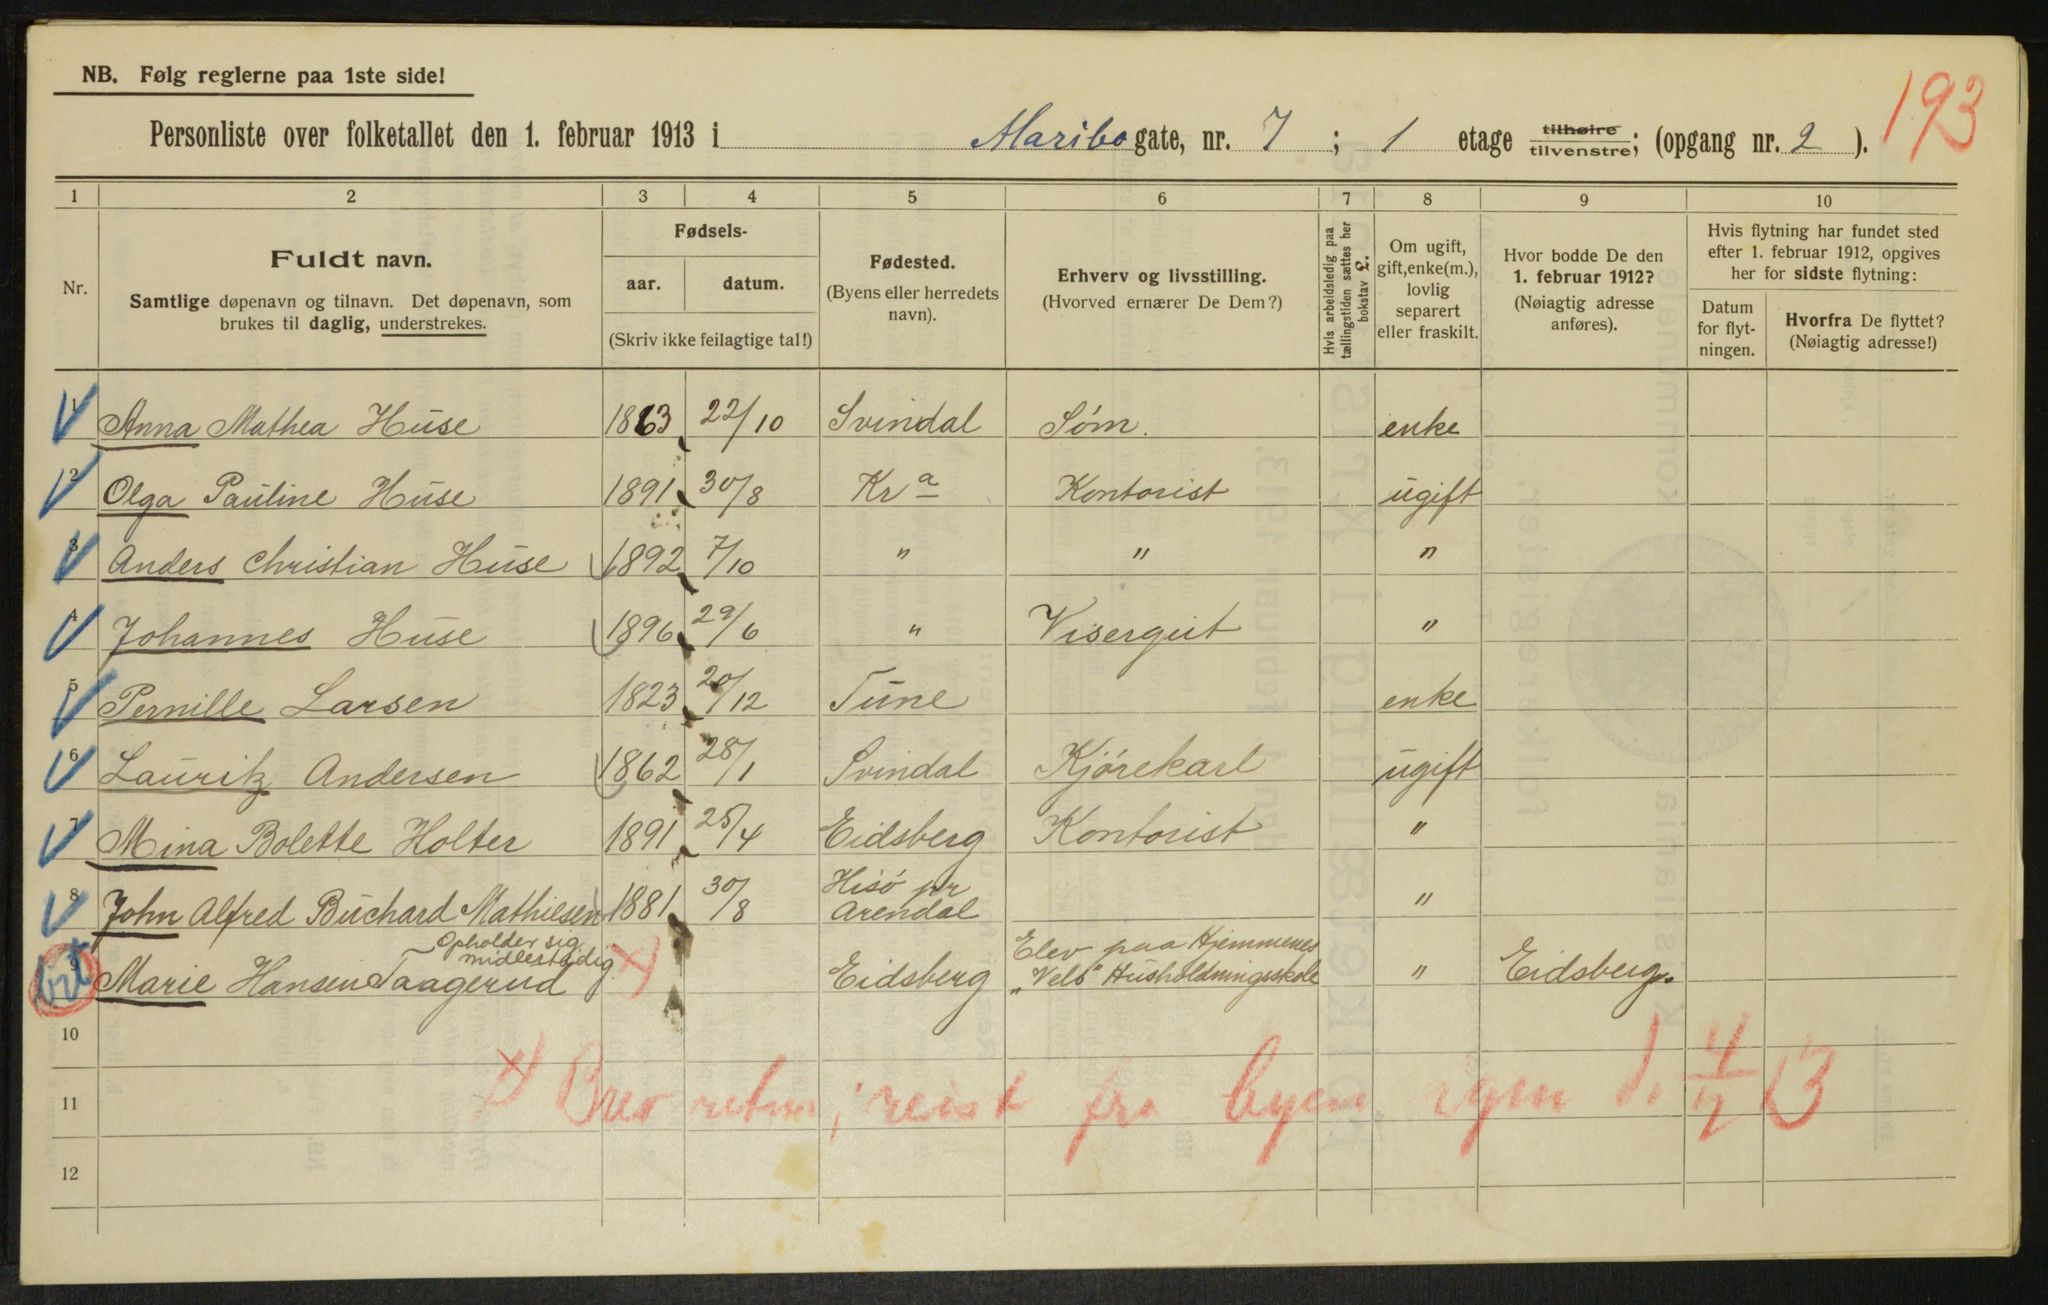 NB. Følg reglerne paa 1ste side!
193
Personliste over folketallet den 1. februar 1913 i Maribo gate, nr. 7 ; 1 etage tilhøire tilvenstre; (opgang nr. 2 ).
1 2 3 4 5 6 7 8 9 10
Nr.
Fuldt navn.
Samtlige døpenavn og tilnavn. Det døpenavn, som
brukes til daglig, understrekes.
Fødsels-
aar. datum.
(Skriv ikke feilagtige tal!)
Fødested.
(Byens eller herredets
navn).
Erhverv og livsstilling.
(Hvorved ernærer De Dem?)
Hvis arbeidsledig paa
tællingstiden sættes her
bokstav L.
Om ugift,
gift, enke(m.),
lovlig
separert
eller fraskilt.
Hvor bodde De den
1. februar 1912?
(Nøiagtig adresse
anføres).
Hvis flytning har fundet sted
efter 1. februar 1912, opgives
her for sidste flytning:
Datum
for flyt-
ningen.
Hvorfra De flyttet?
(Nøiagtig adresse!)
1 Anna Mathea Huse 1863 22/10 Svindal Søm. enke
2 Olga Pauline Huse 1891 30/8 Kr a Kontorist ugift
3 Anders Christian Huse 1892 7/10 " " "
4 Johannes Huse 1896 29/6 " Visergut "
5 Pernille Larsen 1823 20/12 Tune enke
6 Lauritz Andersen 1862 28/1 Svindal Kjørekarl ugift
7 Mina Bolette Holter 1891 25/4 Eidsberg Kontorist "
8 John Alfred Buchard Mathiesen 1881 30/8 Hisö pr Arendal "
Opholder sig
midlestidig
9 Marie Hansen Taagerud Eidsberg Elev paa Hjemmenes "Vels" Husholdningsskole " Eidsberg.
10
11
x) Brev retur; reist fra byen igen d. 4/2 13
12